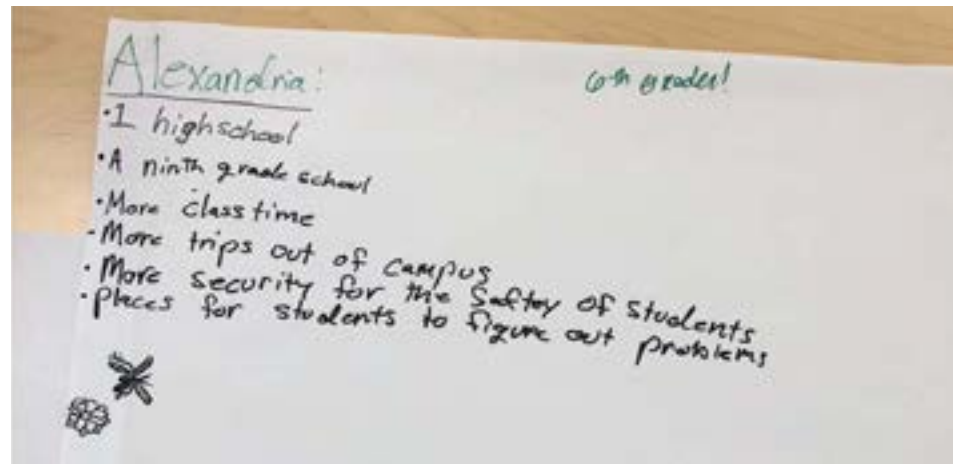 Alexandria:
6th graders!
•1 highschool
•A ninth grade school
•More class time
•More trips out of campus
•More security for the Saftey of students
•places for students to figure out problems